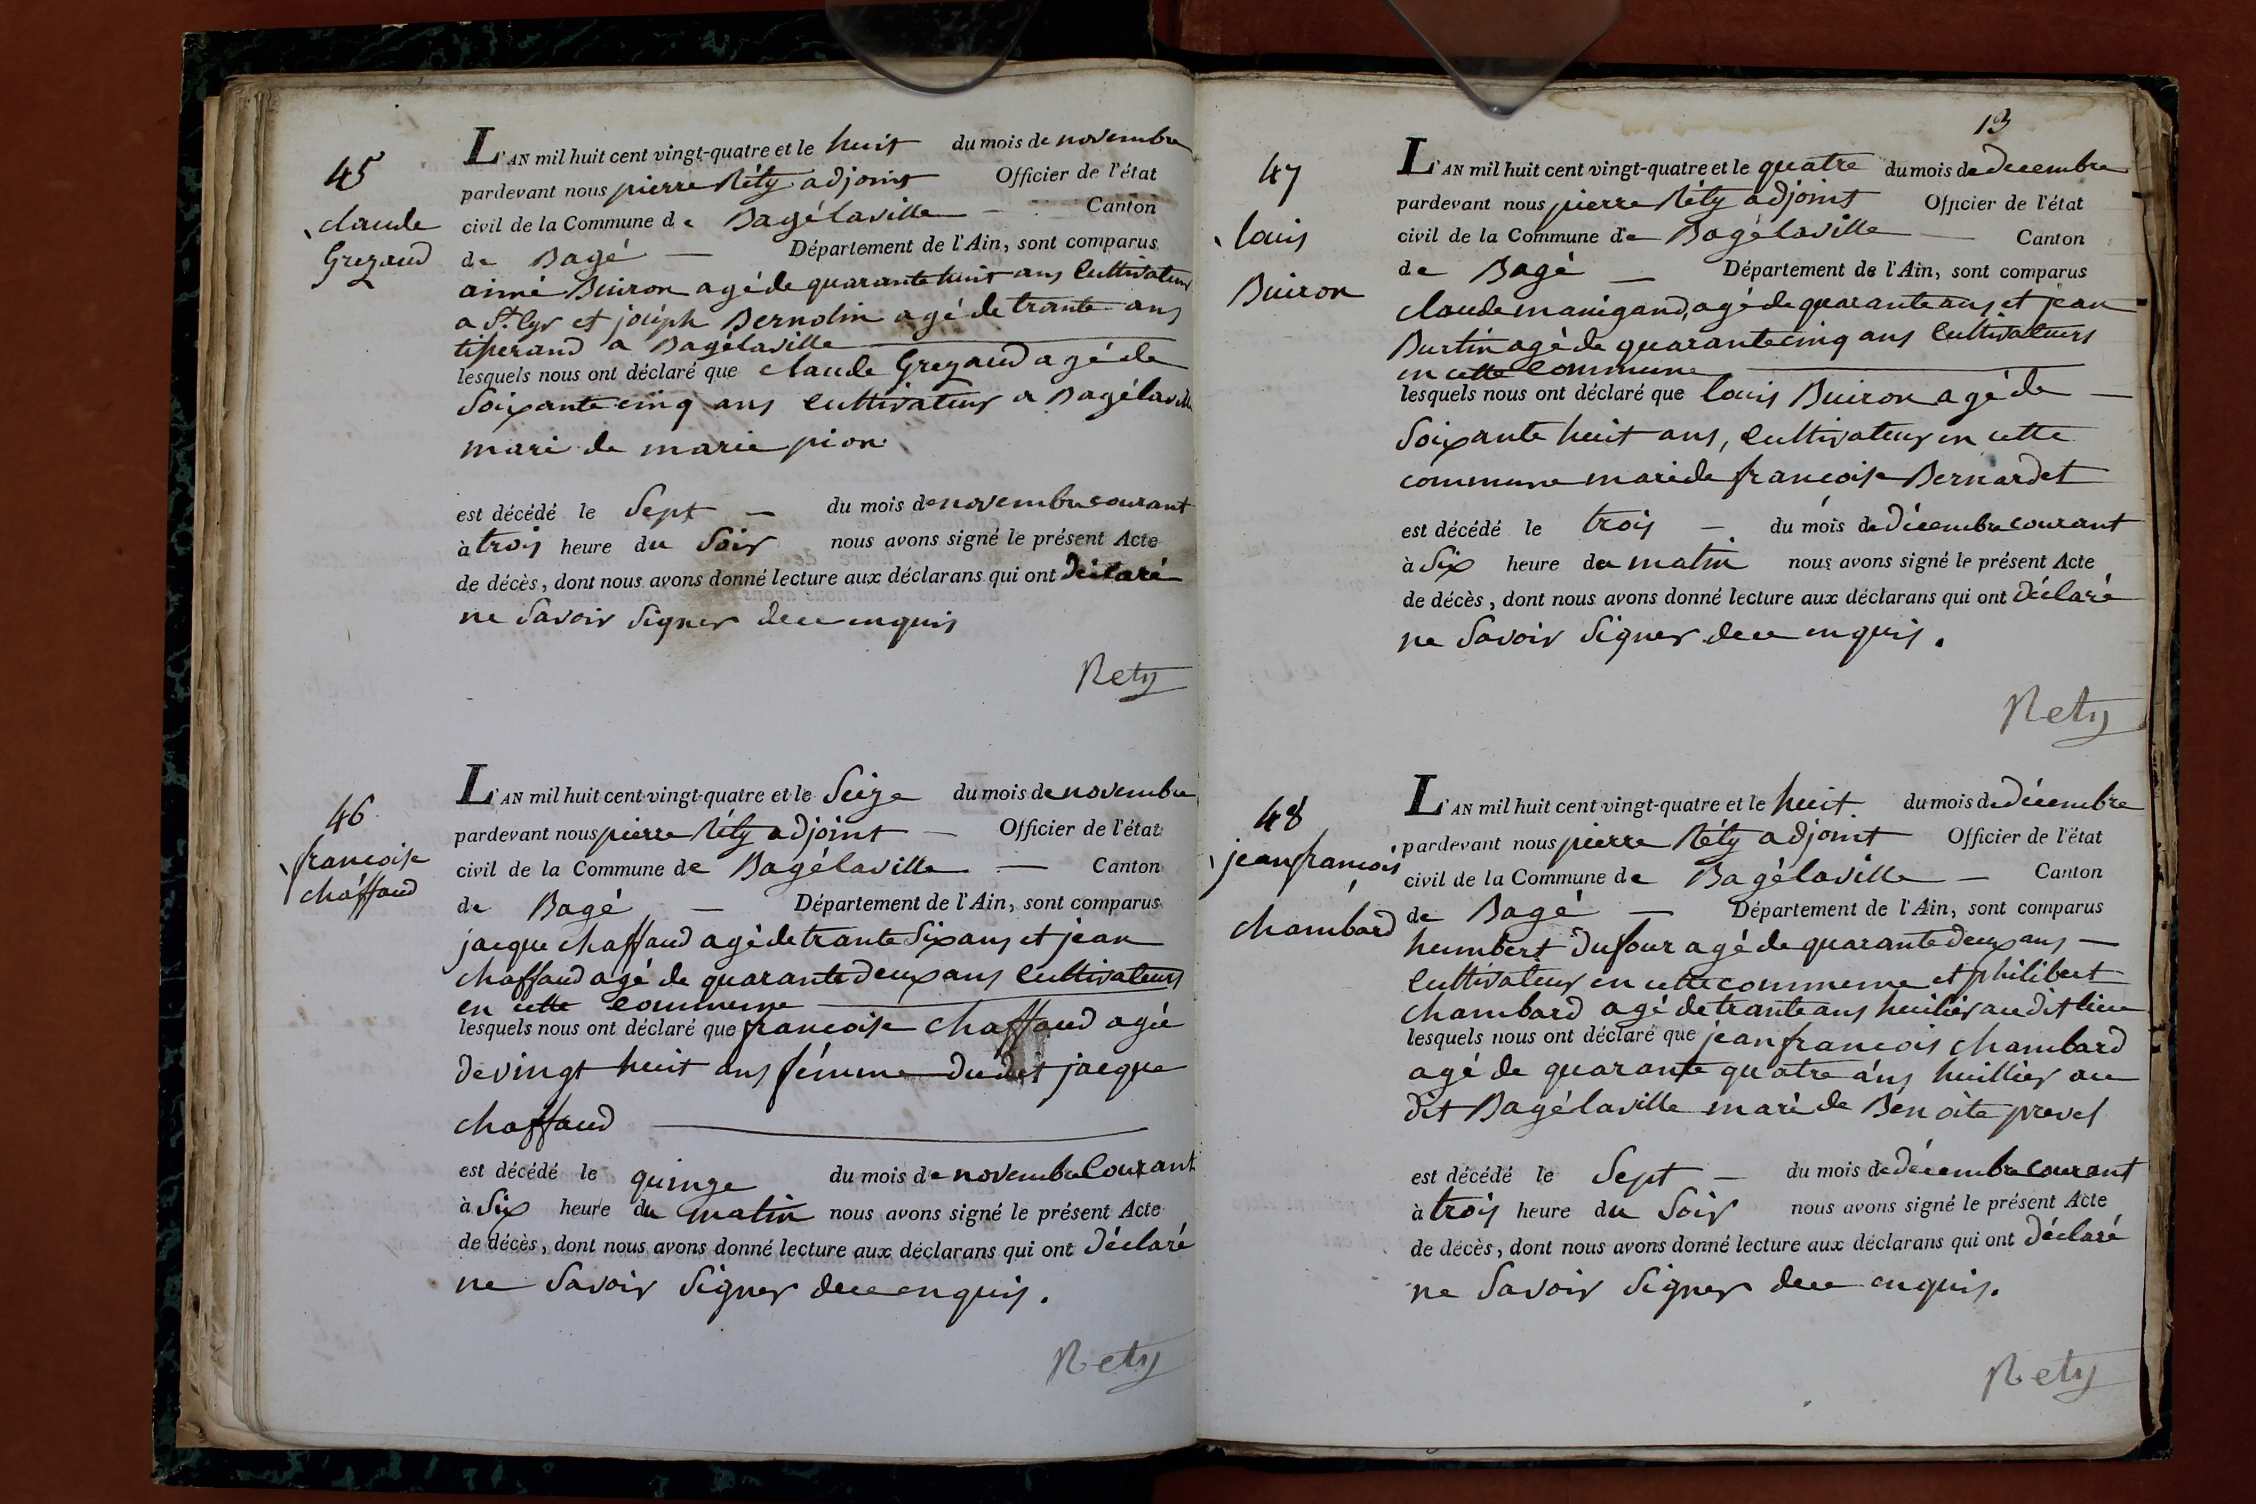 45
claude
Grezaud
L'AN mil huit cent vingt-quatre et le huit du mois de novembre
pardevant nous pierre Réty adjoint Officier de l'état
civil de la Commune de Bagélaville — Canton
de Bagé — Département de l'Ain, sont comparus
aimé Buiron agé de quarante huit ans Cultivateur
a St. Cyr et joseph Bernolin agé de trante ans
tisserand a Bagélaville
lesquels nous ont déclaré que claude Grezaud agé de
Soixante cinq ans cultivateur a Bagélaville
mari de marie pion
est décédé le Sept — du mois de novembre courant
à trois heure du Soir nous avons signé le présent Acte
de décès, dont nous avons donné lecture aux déclarans qui ont déclaré
ne Savoir Signer de ce enquis
Rety
46
francoise
chaffaud
L'AN mil huit cent vingt-quatre et le Seize du mois de novembre
pardevant nous pierre Réty adjoint — Officier de l'état
civil de la Commune de Bagélaville — Canton
de Bagé — Département de l'Ain, sont comparus
jacque chaffaud agé de trante Six ans et jean
chaffaud agé de quarante deux ans Cultivateurs
en cette commune
lesquels nous ont déclaré que francoise chaffaud agée
de vingt huit ans fémme du dit jacque
chaffaud
est décédé le quinze du mois de novembre Courant
à Six heure du matin nous avons signé le présent Acte
de décès, dont nous avons donné lecture aux déclarans qui ont Déclaré
ne Savoir Signer de ce enquis.
Rety
13
47
louis
Buiron
L'AN mil huit cent vingt-quatre et le quatre du mois de decembre
pardevant nous pierre Réty adjoint Officier de l'état
civil de la Commune de Bagélaville — Canton
de Bagé — Département de l'Ain, sont comparus
claude manigand, agé de quarante ans et jean
Burtin agé de quarante cinq ans Cultivateurs
en cette Commune
lesquels nous ont déclaré que louis Buiron agé de —
Soixante huit ans, Cultivateur en cette
commune mari de francoise Bernardet
est décédé le trois — du mois de décembre courant
à Six heure du matin nous avons signé le présent Acte
de décès, dont nous avons donné lecture aux déclarans qui ont déclaré
ne Savoir Signer de ce enquis.
Rety
48
jean francois
chambard
L'AN mil huit cent vingt-quatre et le huit du mois de décembre
pardevant nous pierre Réty adjoint Officier de l'état
civil de la Commune de Bagélaville — Canton
de Bagé — Département de l'Ain, sont comparus
humbert Dufour agé de quarante deux ans —
Cultivateur en cette commune et philibert
chambard agé de trante ans huilier au dit lieu
lesquels nous ont déclaré que jean francois chambard
agé de quarante quatre ans huillier au
dit Bagélaville mari de Bénoite prevel
est décédé le Sept — du mois de décembre courant
à trois heure du Soir nous avons signé le présent Acte
de décès, dont nous avons donné lecture aux déclarans qui ont déclaré
ne Savoir Signer de ce enquis.
Rety